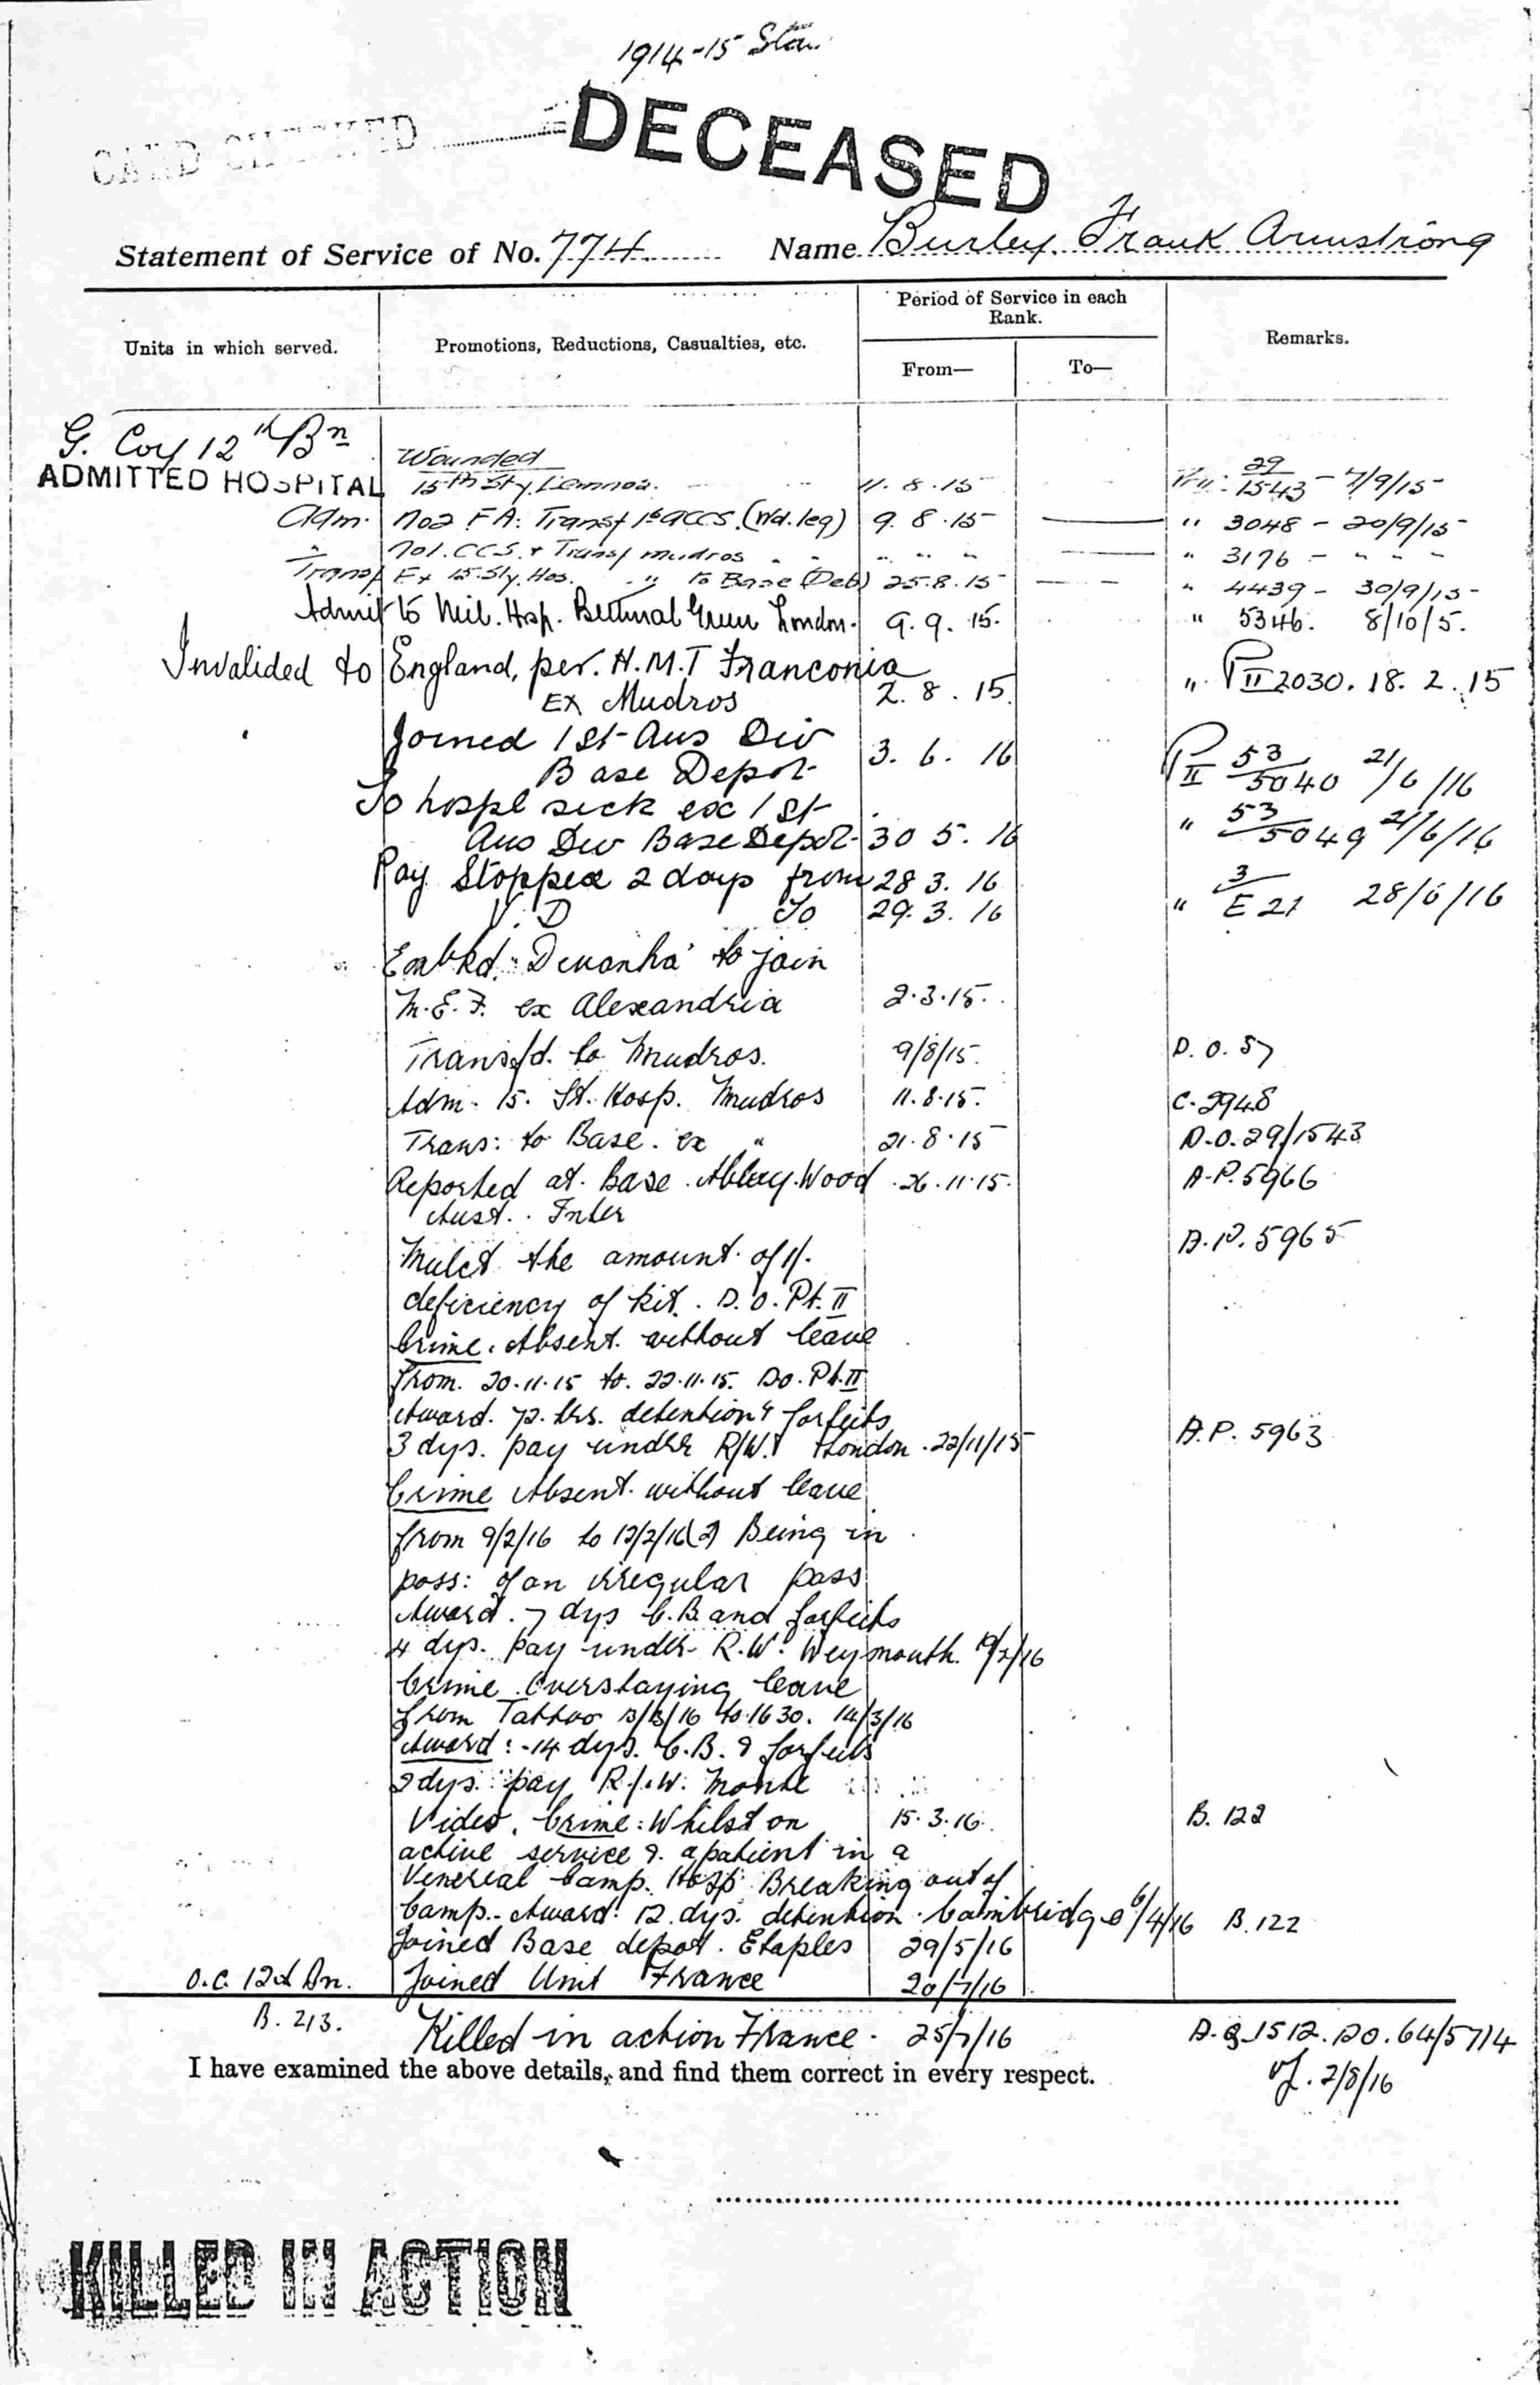 1914-15 Star
CARD CHECKED
DECEASED
Statement of Service of No. 774. Name Burley, Frank Armstrong
Units in which served. Promotions, Reductions, Casualties, etc. Period of Service in each Rank. From— To— Remarks.
G. Coy 12th Bn
Wounded
ADMITTED HOSPITAL 15th Sty, Lemnos. 11.8.15 29/1543 - 7/9/15
Adm. No2 FA: Transf 1st ACCS. (Wd. leg) 9.8.15 " 3048 - 20/9/15
" No1. CCS. & Transf Mudros " " " " " " 3176 - " " "
Transf Ex 15. Sty. Hos. " to Base (Deb) 25.8.15 " 4439 - 30/9/15
Admit to Mil. Hsp. Bethnal Green London. 9.9.15. " 5346. 8/10/5.
Invalided to England, per. H.M.T Franconia
Ex Mudros 2.8.15. " PII 2030. 18.2.15
Joined 1st Aus Div
Base Depot 3.6.16 PII 53/5040 21/6/16
To hospl sick ex 1st
Aus Div Base Depot 30 5.16 " 53/5049 21/6/16
Pay Stopped 2 days from 28 3.16
V.D To 29.3.16 " 3/E 21 28/6/16
Embkd. "Devanha" to join
M.E.F. ex Alexandria 2.3.15.
Transfd. to Mudros. 9/8/15. D.O. 57
Adm. 15. St. Hosp. Mudros 11.8.15. C.2948
Trans: to Base. ex " 21.8.15 D.O.29/1543
Reported at. Base. Abbey Wood. 26.11.15. A.P.5966
Aust. Inter
Mulct the amount of 1/- A.P. 5965
deficiency of kit. D.O. Pt. II
Crime. Absent. without leave
from. 20.11.15 to. 22.11.15. DO. Pt. II
Award. 72. hrs. detention & forfeits
3 dys. pay under R/W. London. 22/11/15 A.P. 5963
Crime Absent. without leave
from 9/2/16 to 12/2/16 (2) Being in
poss: of an irregular pass
Award. 7 dys C.B. and forfeits
4 dys. pay under R.W. Weymouth. 19/2/16
Crime. Overstaying leave
from Tattoo 13/3/16 to 1630. 14/3/16
Award: -14 dys. C.B. & forfeits
2 dys. pay R.W. Monte
Video. Crime: Whilst on 15.3.16. B. 122
active service & a patient in a
Venereal Camp. Hosp Breaking out of
Camp. - Award: 12. dys. detention. Cambridge 6/4/16 B.122
Joined Base depot. Etaples 29/5/16
O.C. 12th Bn. Joined Unit France 20/7/16
B.213. Killed in action France. 25/7/16 1512. DO. 64/5714
of. 2/8/16
I have examined the above details, and find them correct in every respect.
KILLED IN ACTION